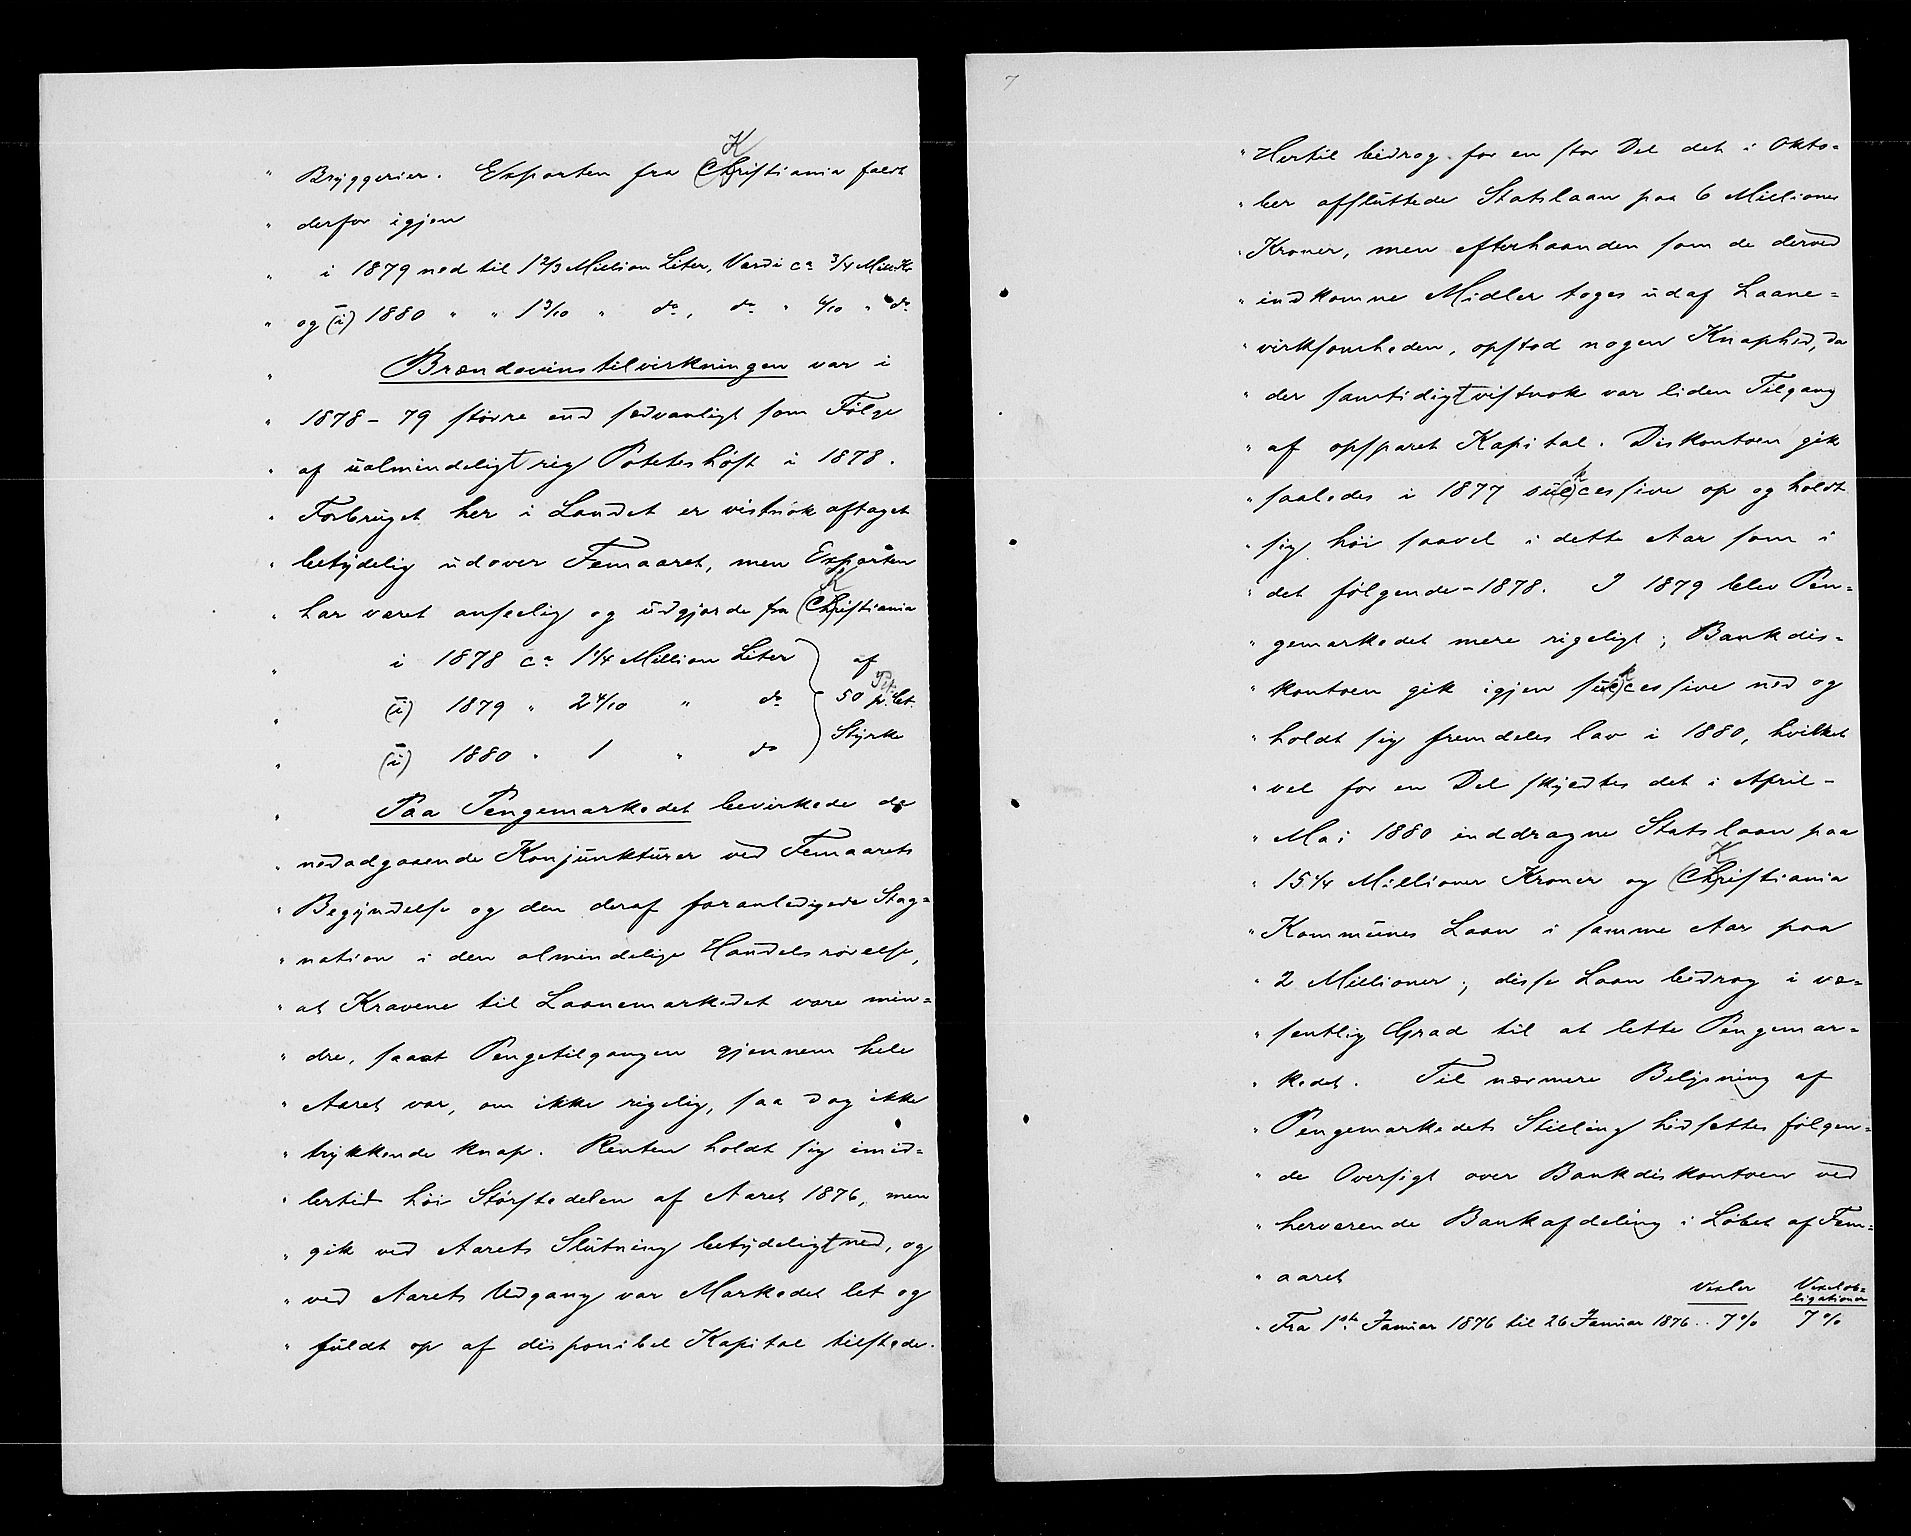 " Bryggerier. Exporten fra (Ch)Kristiania faldt
" derfor igjen
" i 1879 ned til 1 2/3 Million Liter, Værdi ca 3/4 Mill. Kr
" og (i) 1880 " " 1 3/10 " do, do " 6/10 " do
" Brændevinstilvirkningen var i
" 1878-79 større end sædvanligt som Følge
" af ualmindeligt rig Poteteshøst i 1878.
" Forbruget her i Landet er vistnok aftaget
" betydelig udover Femaaret, men Exporten
" har været anseelig og udgjorde fra (Ch)Kristiania
" i 1878 ca 1 1/4 Million Liter } af
" (i) 1879 " 2 4/10 " do } 50 p.Ct.
" (i) 1880 " 1 " do } Styrke
" Paa Pengemarkedet bevirkede de
" nedadgaaende Konjunkturer ved Femaarets
" Begyndelse og den deraf foranledigede Stag=
" nation i den almindelige Handelsrørelse,
" at Kravene til Laanemarkedet vare min=
" dre, saa at Pengetilgangen gjennem hele
" Aaret var, om ikke rigelig, saa dog ikke
" trykkende knap. Renten holdt sig imid=
" lertid høi Størstedelen af Aaret 1876, men
" gik ved Aarets Slutning betydeligt ned, og
" ved Aarets Udgang var Markedet let og
" fuldt op af disponibel Kapital tilstede.
7
" Hertil bidrog for en stor Del det i Okto=
" ber afsluttede Statslaan paa 6 Millioner
" Kroner, men efterhaanden som de derved
" indkomne Midler toges ud af Laane=
" virksomheden, opstod nogen Knaphed, da
" der samtidigt vistnok var liden Tilgang
" af opsparet Kapital. Diskontoen gik
" saaledes i 1877 su(c)kcessive op og holdt
" sig høi saavel i dette Aar som i
" det følgende - 1878. I 1879 blev Pen=
" gemarkedet mere rigeligt; Bankdis=
" kontoen gik igjen su(c)kcessive ned og
" holdt sig fremdeles lav i 1880, hvilket
" vel for en Del skyldtes det i April-
" Mai 1880 inddragne Statslaan paa
" 15 1/4 Millioner Kroner og (Ch)Kristiania
" Kommunes Laan i samme Aar paa
" 2 Millioner; disse Laan bidrog i væ=
" sentlig Grad til at lette Pengemar=
" kedet. Til nærmere Belysning af
" Pengemarkedets Stilling hidsættes følgen=
" de Oversigt over Bankdiskontoen ved
" herværende Bankafdeling i Løbet af Fem=
" aaret
Vexler Vexelob=
ligationer
" Fra 1ste Januar 1876 til 26 Januar 1876.. 7% 7%